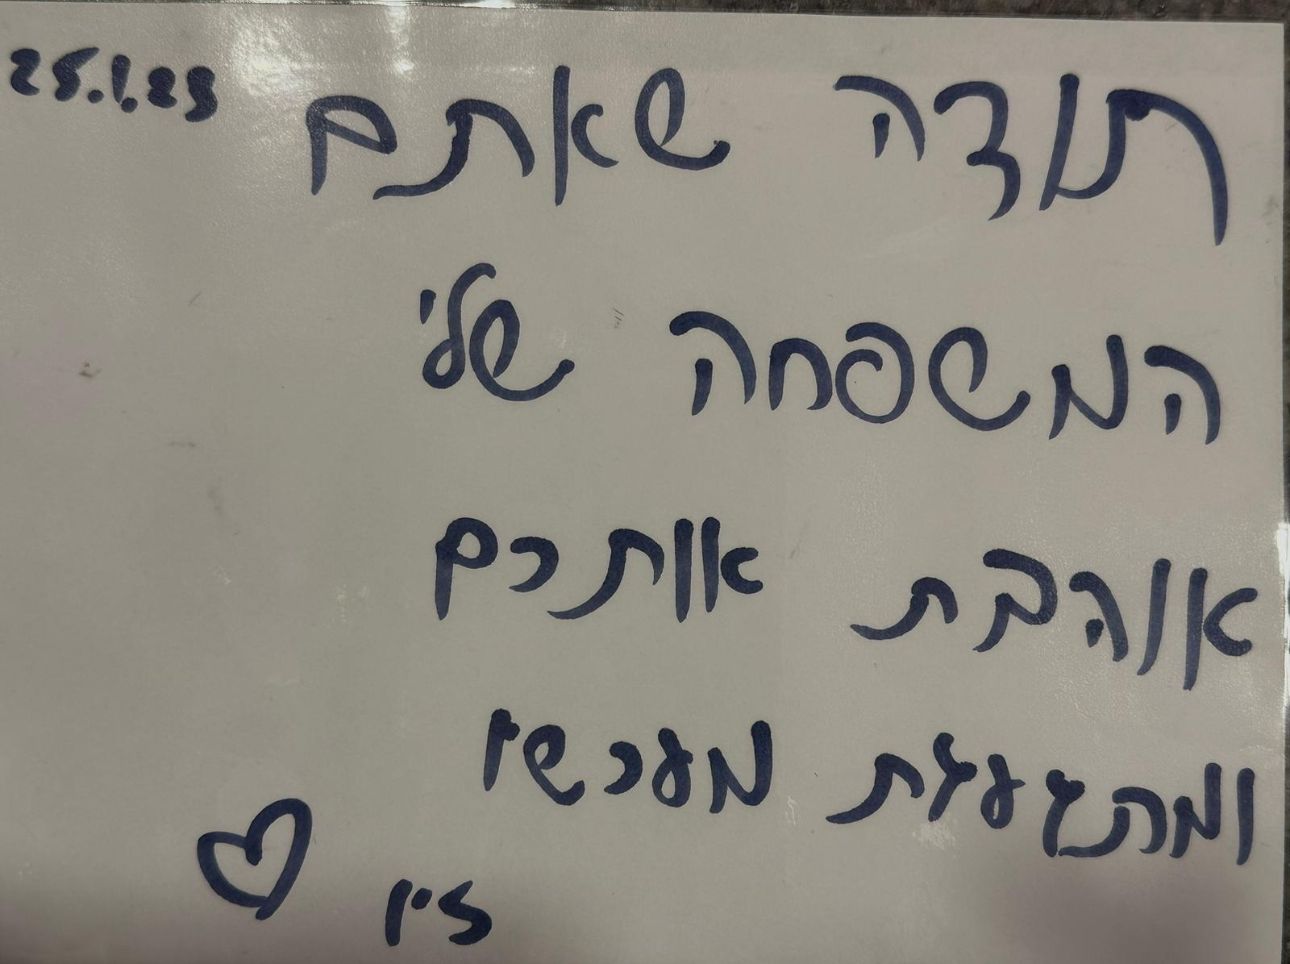 תודה שאתם 25.1.23
המשפחה שלי
אוהבת אותכם
ומתגעגעת מעכשיו
זיו